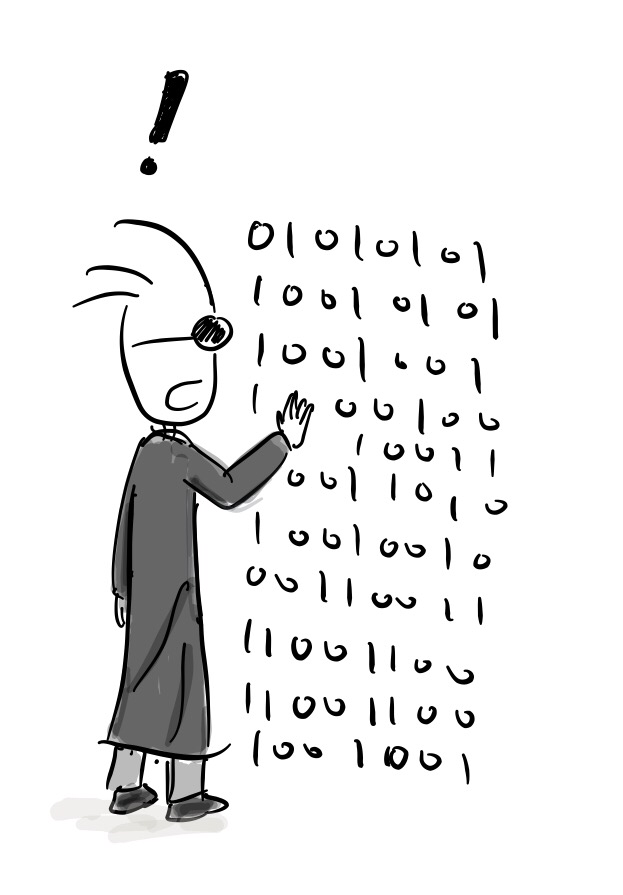 !
0 1 0 1 0 1 0 1
1 0 0 1 0 1 0 1
1 0 0 1 0 0 1
1 0 0 1 0 0
1 0 0 1 1
0 0 1 1 0 1 0
1 0 0 1 0 0 1 0
0 0 1 1 0 0 1 1
1 1 0 0 1 1 0 0
1 1 0 0 1 1 0 0
1 0 0 1 0 0 1